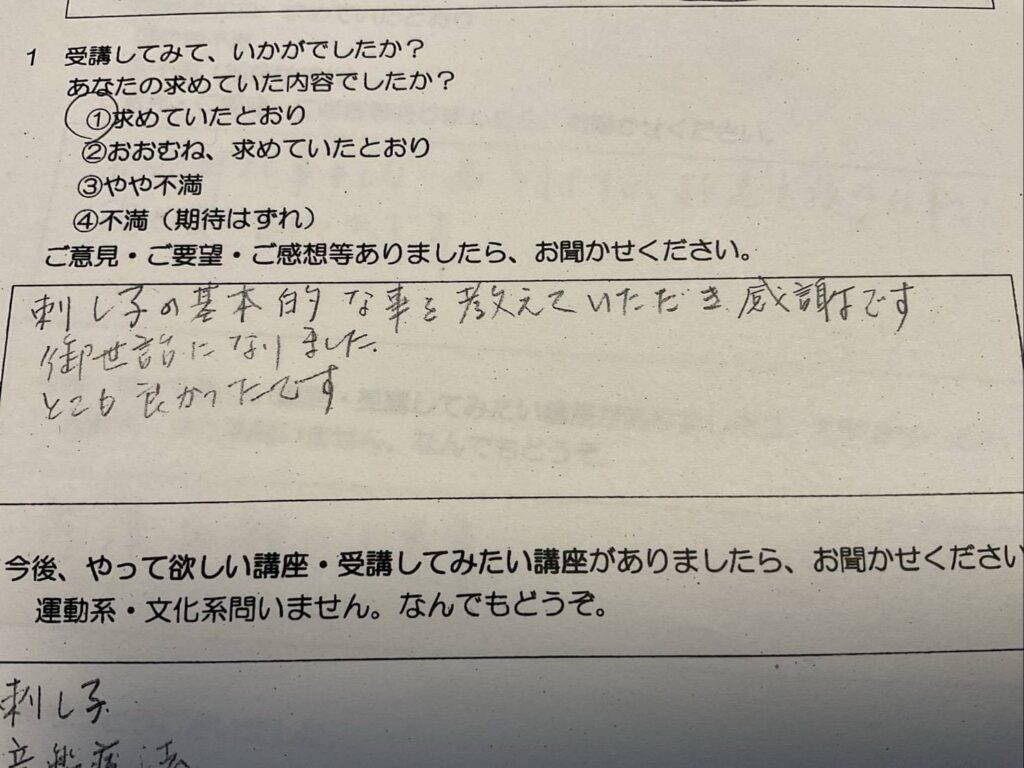 1 受講してみて、いかがでしたか？
あなたの求めていた内容でしたか？
①求めていたとおり
②おおむね、求めていたとおり
③やや不満
④不満（期待はずれ）
ご意見・ご要望・ご感想等ありましたら、お聞かせください。
刺し子の基本的な事を教えていただき感謝です
御世話になりました。
とても良かったです
今後、やって欲しい講座・受講してみたい講座がありましたら、お聞かせください
運動系・文化系問いません。なんでもどうぞ。
刺し子